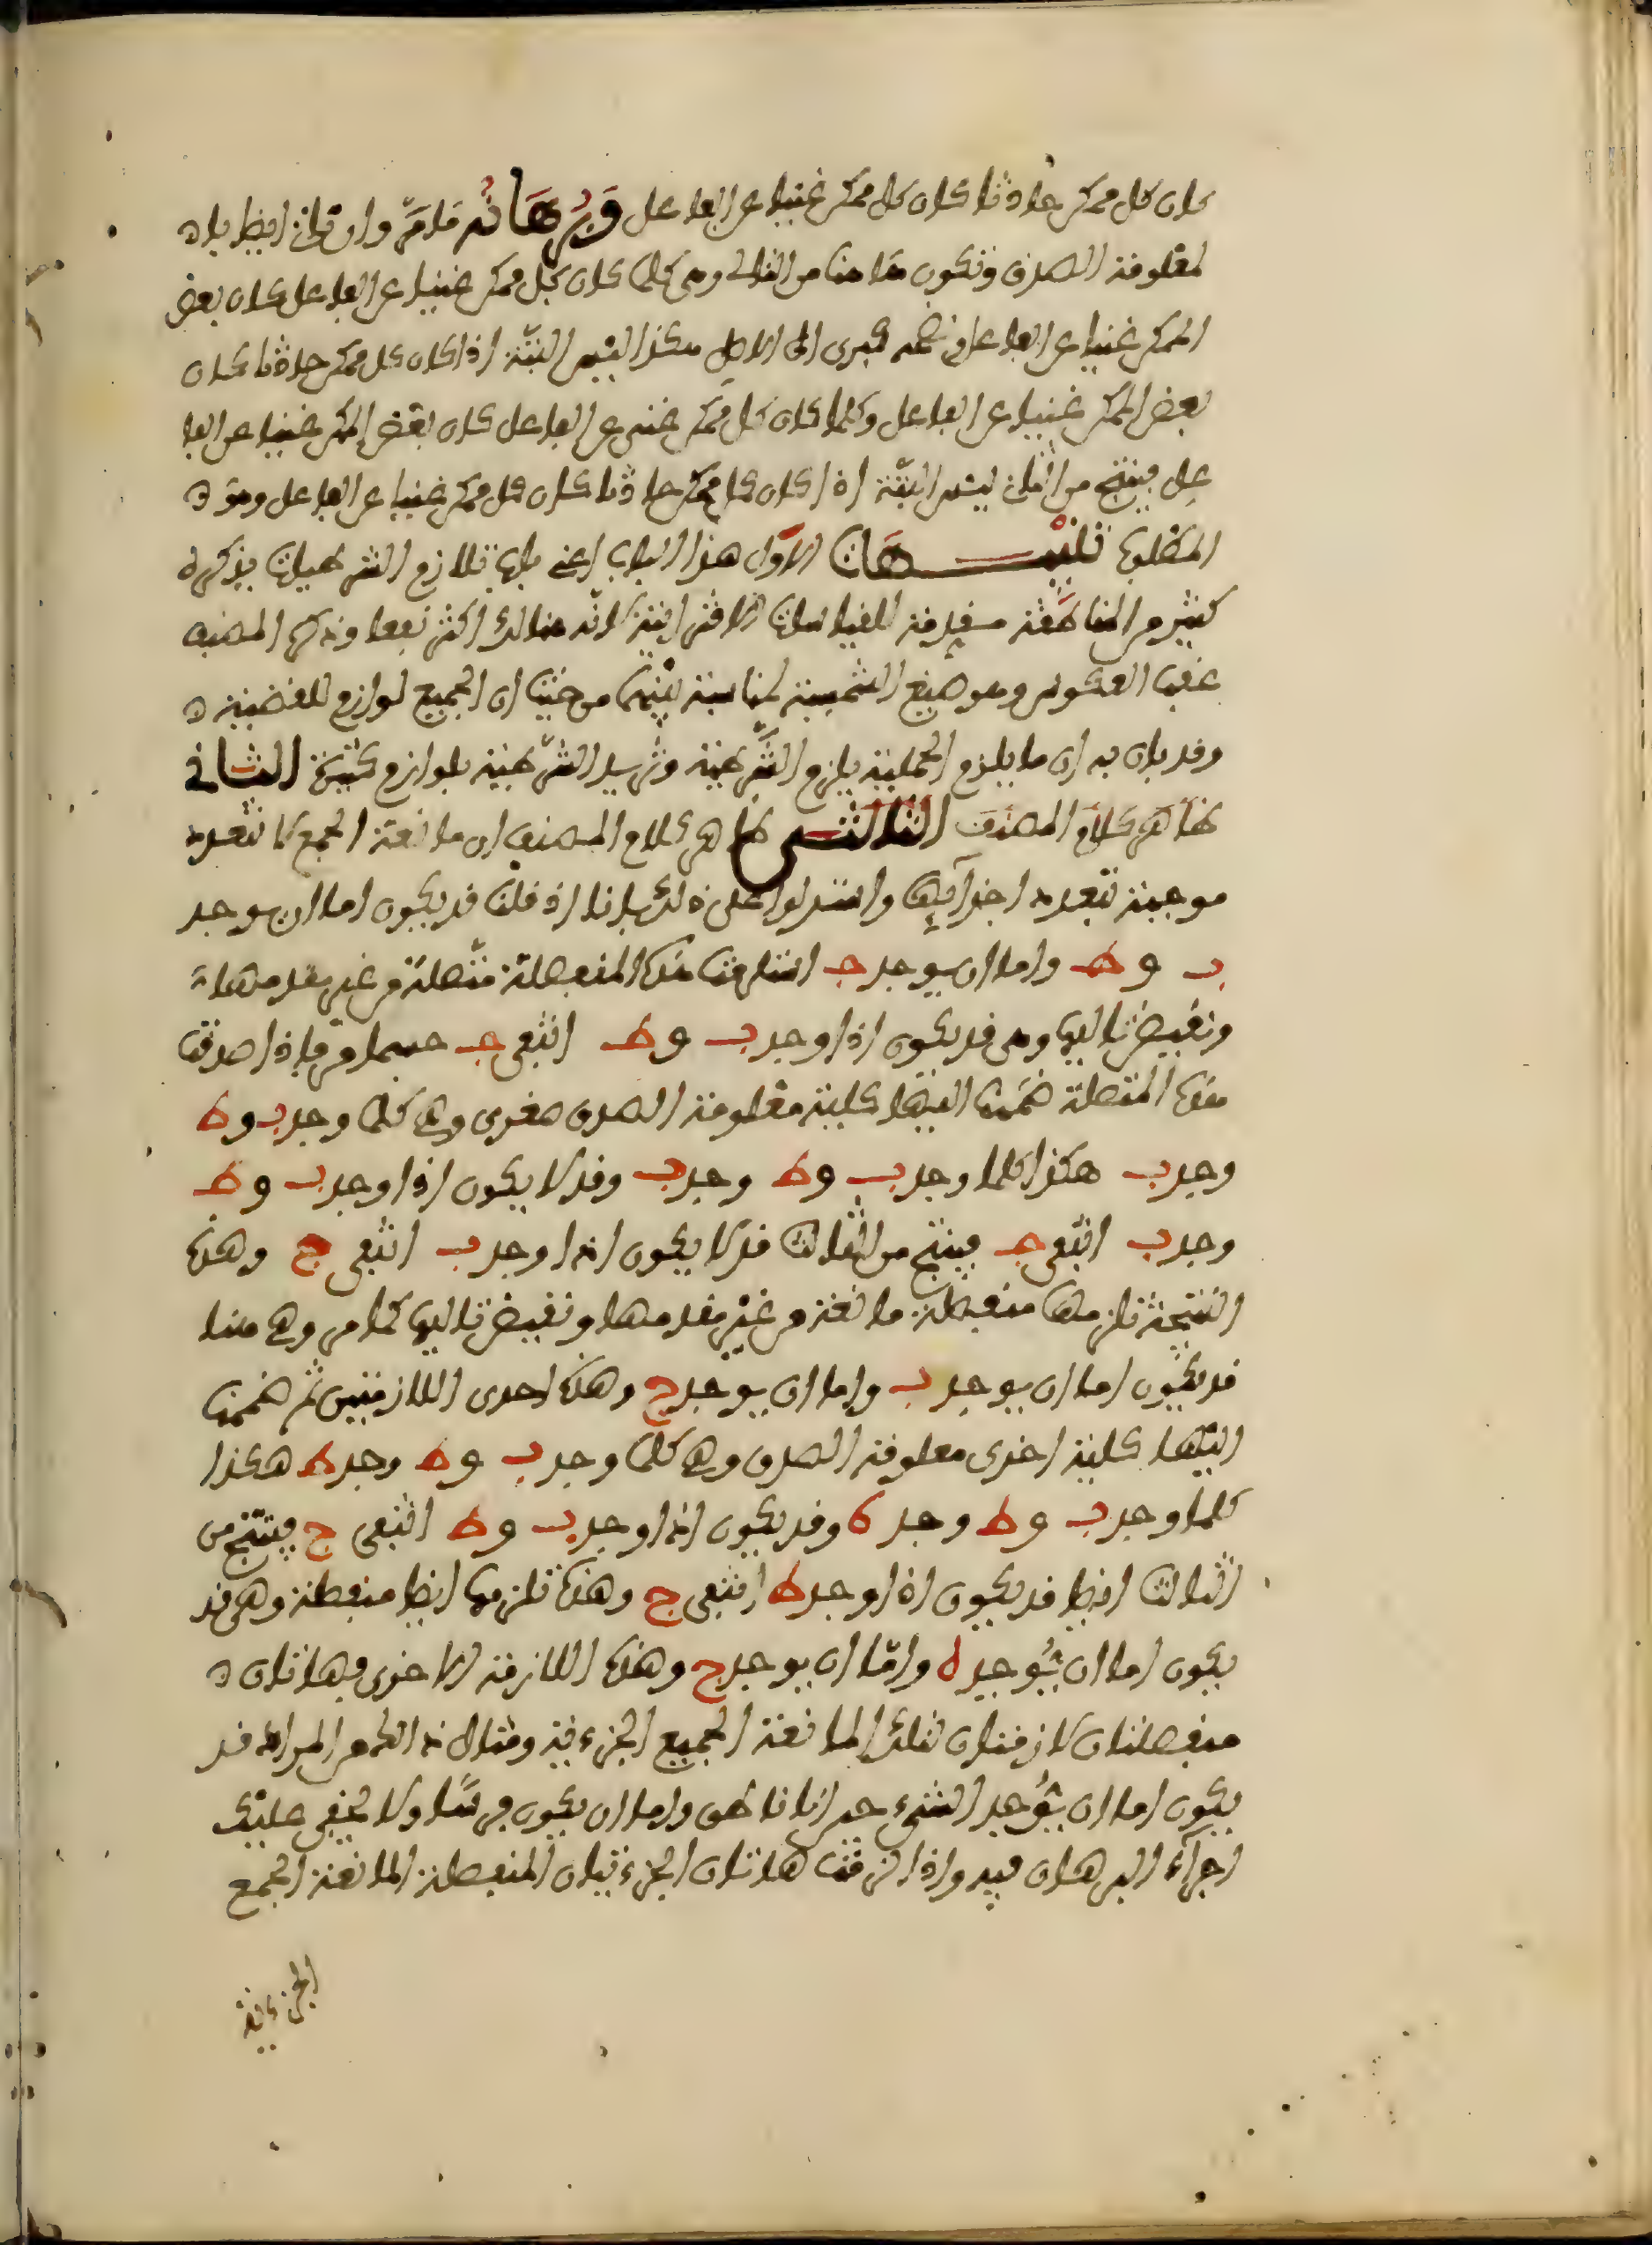 كان كل ممكن حادثا كان كل ممكن غنيا عن الفاعل وبرهانه ما مر وان قلت ايضا بان
معلومة الصدق وتكون هاهنا من التالي وهي كلما كان كل ممكن غنيا عن الفاعل كان بعض
الممكن غنيا عن الفاعل فنضم كبرى الى الاصل هكذا ليس البتة اذا كان كل ممكن حادثا كان
بعض الممكن غنيا عن الفاعل وكلما كان كل ممكن غنى عن الفاعل كان بعض الممكن غنيا عن الفا
عل فينتج من الثاني ليس البتة اذا كان كل ممكن حادثا كان كل ممكن غنيا عن الفاعل وهو
المطلوب تنبيهات الاول هذا الباب اعني باب تلازم الشرطيات يذكره
كثير من المناطقة مقدمة للقياسات الاقترانية لانه هنالك اكثر نفعا وذكره المصنف
عقب العكوس وهو صنيع الشمسية لمناسبة بينهما من حيث ان الجميع لوازم للقضية
وقد بان به ان ما يلزم الحملية يلزم الشرطية وتزيد الشرطية بلوازم كثيرة الثاني
ظاهر كلام المصنف الثالث ظاهر كلام المصنف ان مانعة الجمع لا تتعدد
موجبة بتعدد اجزائها واستدلوا على ذلك بانا اذا قلنا قد يكون اما ان يوجد
ب وط واما ان يوجد ج استلزمت هذه المنفصلة متصلة من عين مقدمها
ونقيض تاليها وهي قد يكون اذا وجد ب وط انتفى ج حسبما مر فاذا صدقت
هذه المتصلة ضممنا اليها كلية معلومة الصدق صغرى وهي كلما وجد ب وط
وجد ب هكذا كلما وجد ب وط وجد ب وقد لا يكون اذا وجد ب وط
وجد ب انتفى ج فينتج من الثالث قد لا يكون اذا وجد ب انتفى ج وهذه
النتيجة تلزمها منفصلة مانعة من عين مقدمها ونقيض تاليها كما مر وهي هنا
قد يكون اما ان يوجد ب واما ان يوجد ج وهذه احدى اللازمتين ثم ضممنا
اليها كلية اخرى معلومة الصدق وهي كلما وجد ب وط وجد ط هكذا
كلما وجد ب وط وجد ط وقد يكون اذا وجد ب وط انتفى ج فينتج من
الثالث ايضا قد يكون اذا وجد ط انتفى ج وهذه تلزمها ايضا منفصلة وهي قد
يكون اما ان يوجد ط واما ان يوجد ج وهذه اللازمة الاخرى فهاتان
منفصلتان لازمتان لتلك المانعة الجميع الجزءية ومثال قد
يكون اما ان يوجد الشيء حيوانا ناطق واما ان يكون فرسا ولا يخفى عليك
اجراء البرهان فيه واذا لزمت هاتان الجزءيتان المنفصلة المانعة الجمع
الجزءية